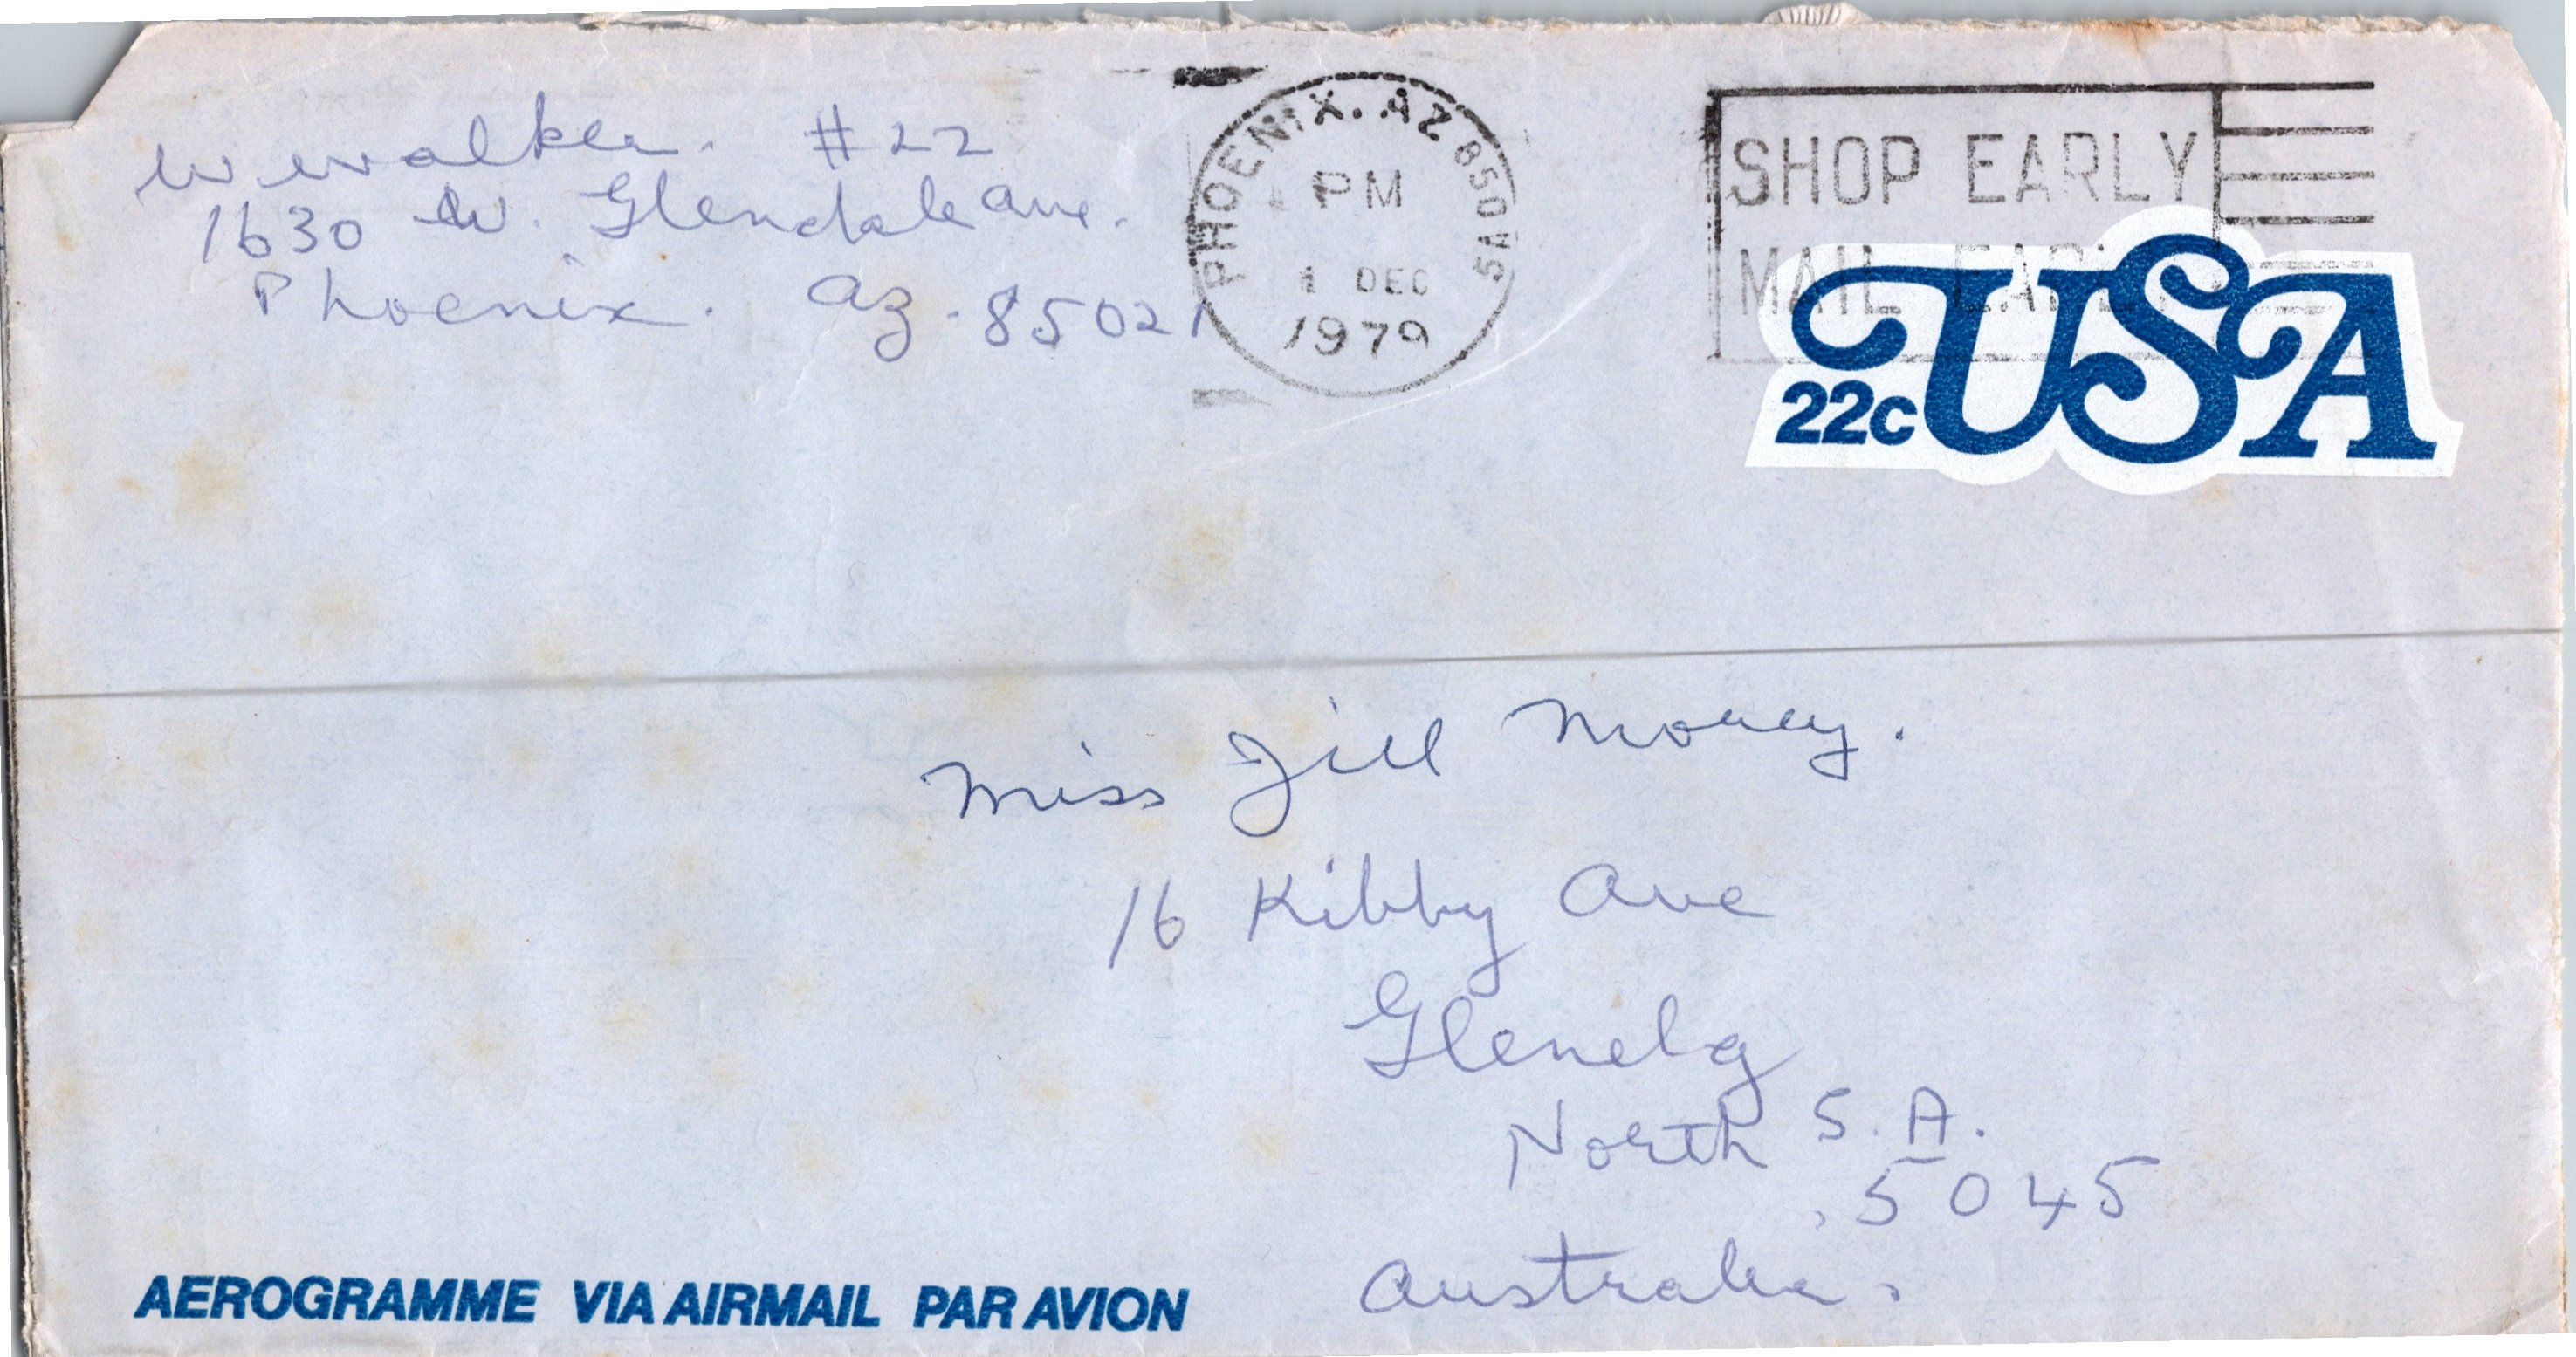 W Walker. #22
1630 W. Glendale Ave.
Phoenix. Az. 85021
PHOENIX. AZ 850
PM
1 DEC
1979
SHOP EARLY
MAIL EARLY
22c USA
Miss Jill
16 Kibby Ave
Glenelg
North S.A.
5045
Australia.
AEROGRAMME VIA AIRMAIL PAR AVION